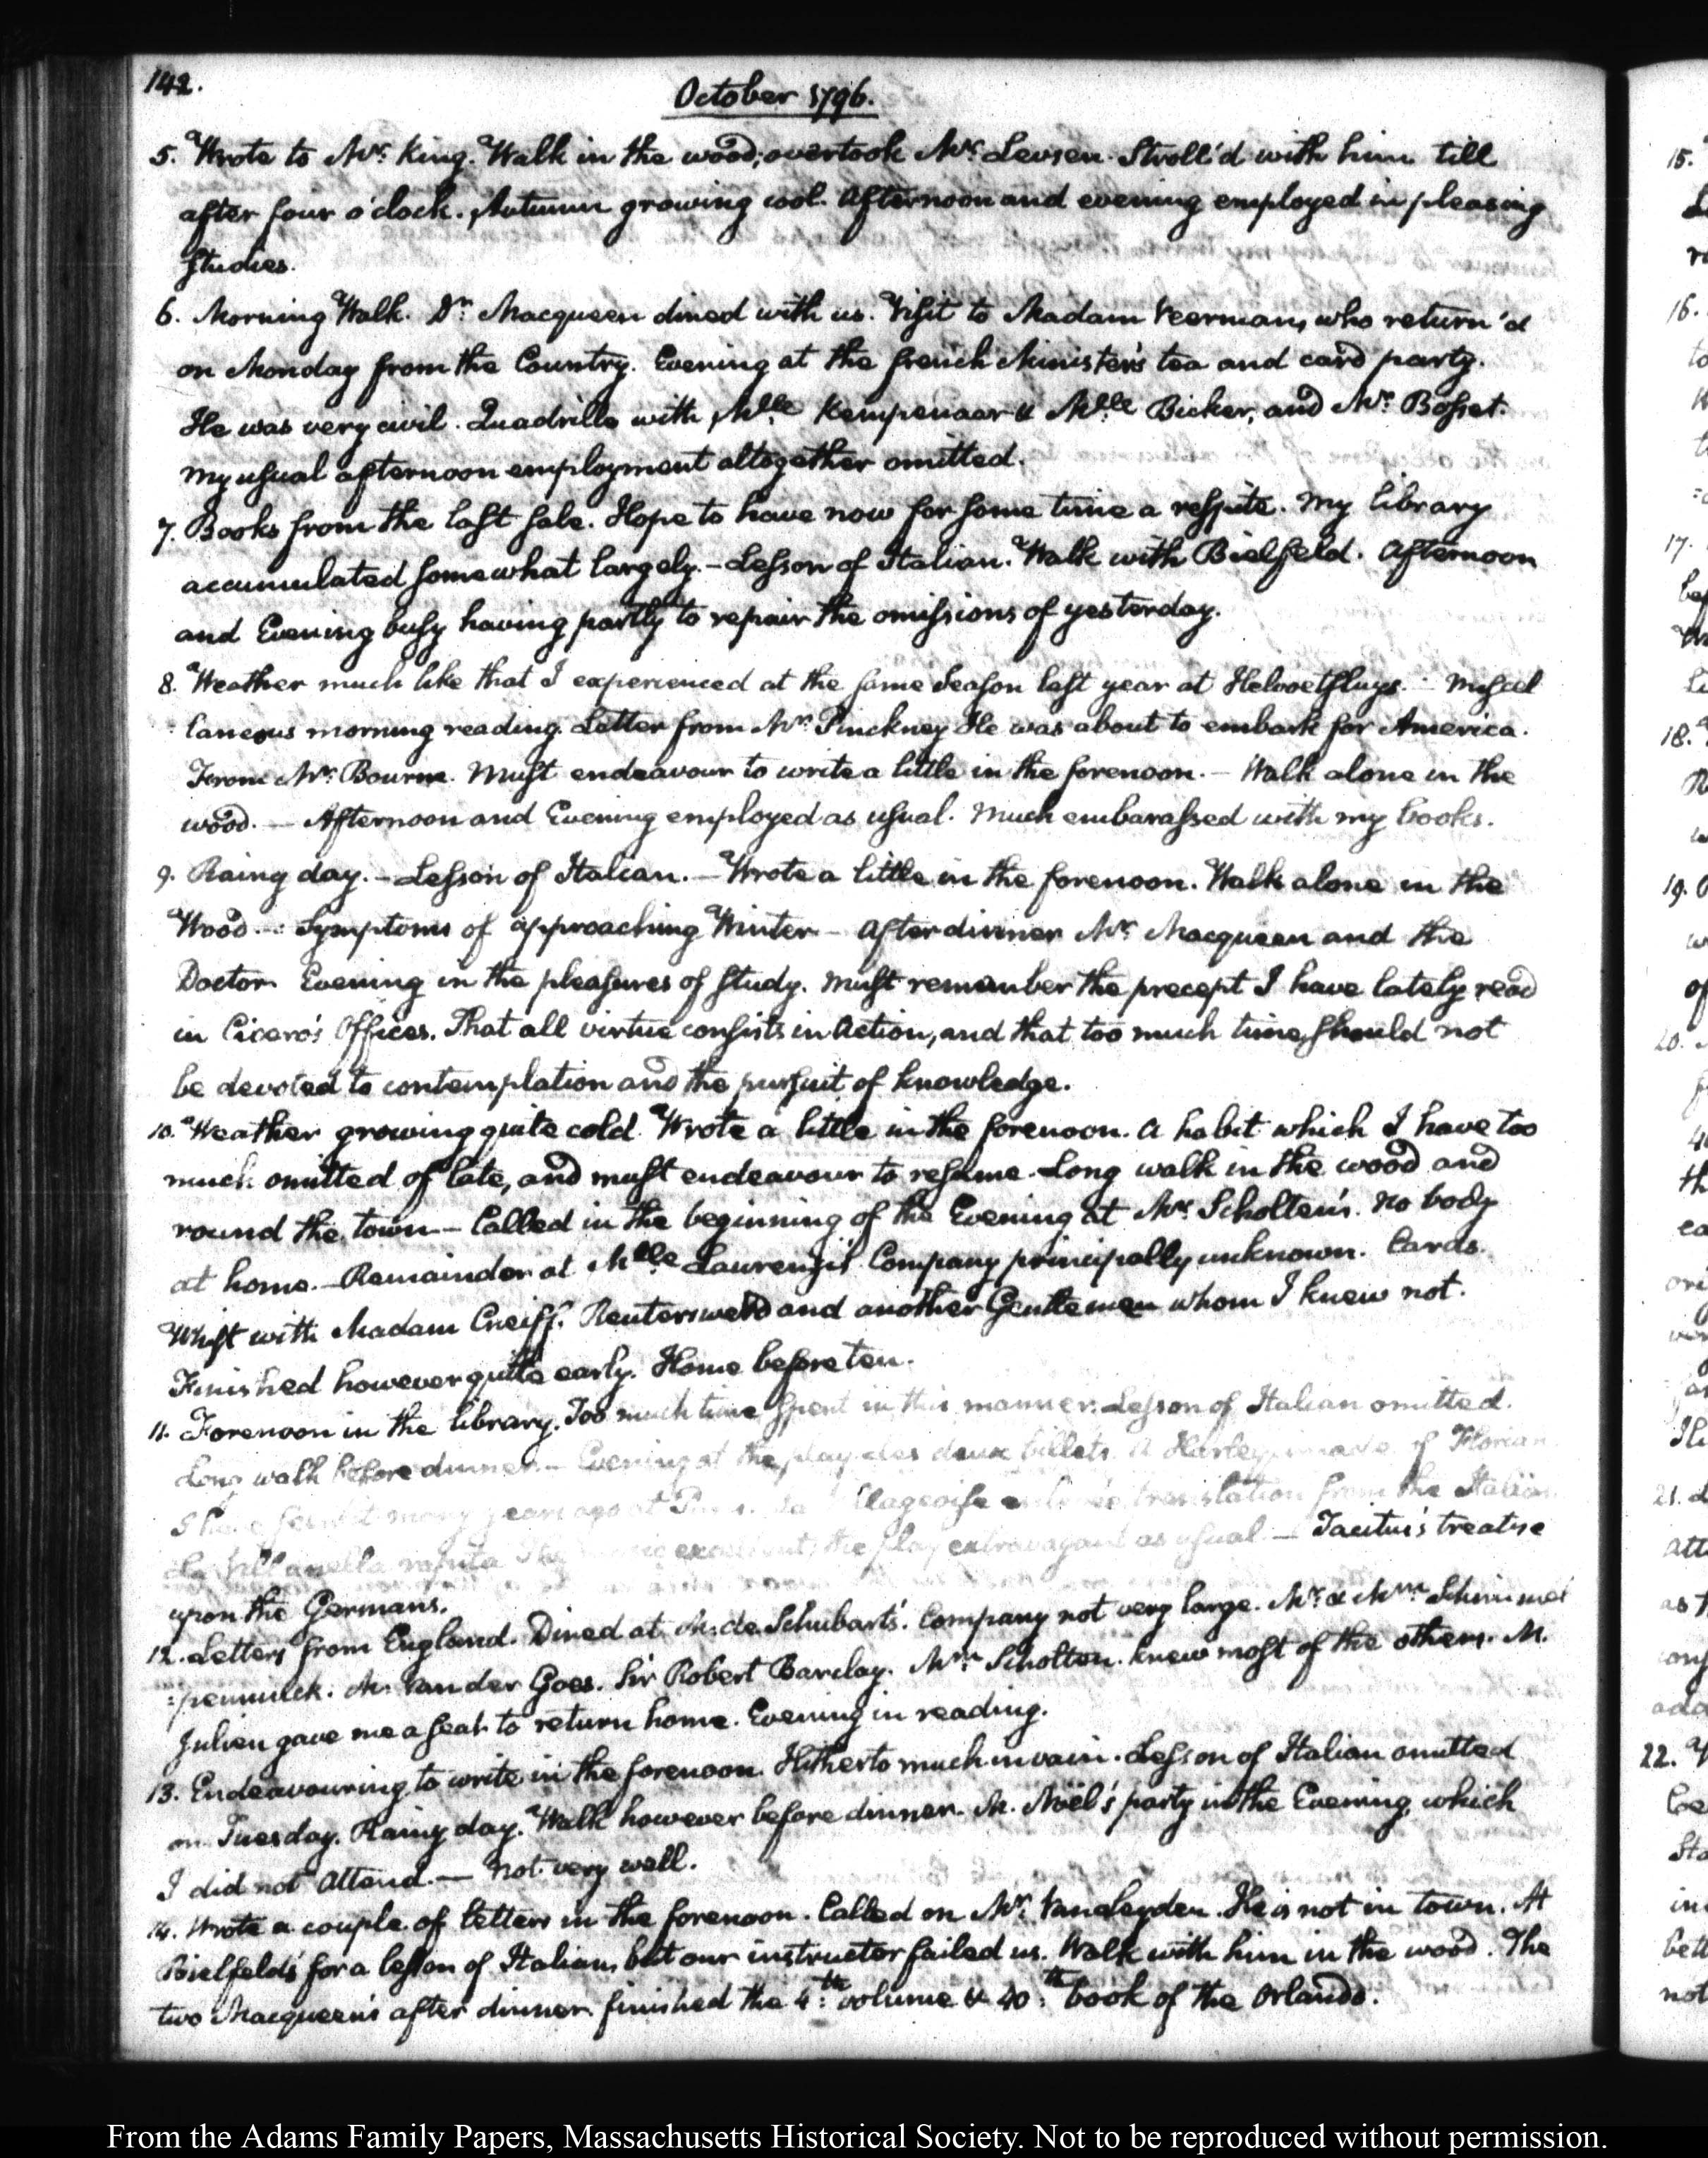 142.
October 1796.
5. Wrote to Mr. King. Walk in the wood; overtook Mr. Levsen. Stroll'd with him till
after four o'clock. Autumn growing cool. Afternoon and evening employed in pleasing
studies.
6. Morning Walk. Dr. Macqueen dined with us. Visit to Madam Veerman, who return'd
on Monday from the Country. Evening at the french Minister's tea and card party.
He was very civil. Quadrille with Mlle. Kempenaar & Mlle. Bicker, and Mr. Bosset.
My usual afternoon employment altogether omitted.
7. Books from the last sale. Hope to have now for some time a respite. My library
accumulated somewhat largely.—Lesson of Italian. Walk with Bielfeld. Afternoon
and Evening busy having partly to repair the omissions of yesterday.
8. Weather much like that I experienced at the same Season last year at Helvoetsluys.— Miscel
laneous morning reading. Letter from Mr. Pinckney He was about to embark for America.
From Mr. Bourne. Must endeavour to write a little in the forenoon.— Walk alone in the
wood.— Afternoon and Evening employed as usual. Much embarassed with my books.
9. Rainy day.—Lesson of Italian.—Wrote a little in the forenoon. Walk alone in the
Wood.— Symptoms of approaching Winter— After dinner Mr. Macqueen and the
Doctor. Evening in the pleasures of study. Must remember the precept I have lately read
in Cicero's Offices. That all virtue consists in Action, and that too much time should not
be devoted to contemplation and the pursuit of knowledge.
10. Weather growing quite cold. Wrote a little in the forenoon. A habit which I have too
much omitted of late, and must endeavour to resume. Long walk in the wood and
round the town— Called in the beginning of the Evening at Mr. Scholten's. No body
at home.—Remainder at Mlle Laurenzii. Company principally unknown. Cards.
Whist with Madam Creiff. Reutersward and another Gentleman whom I knew not.
Finished however quite early. Home before ten.
11. Forenoon in the library. Too much time spent in this manner. Lesson of Italian omitted.
Long walk before dinner.— Evening at the play des deux billets. A Harley of Florian
I have seen it many years ago at translation from the Italian
La Villanella rapita. The excellent; the play extravagant as usual.— Tacitus's treatise
upon the Germans.
12. Letters from England. Dined at M. de Schubart's. Company not very large. Mr. & Mrs. Schimmel
:penninck. M. Van der Goes. Sir Robert Barclay. Mrs. Scholten. knew most of the others. M.
Julien gave me a seat to return home. Evening in reading.
13. Endeavouring to write in the forenoon. Hitherto much in vain. Lesson of Italian omitted
on Tuesday. Rainy day. Walk however before dinner. M. Noël's party in the Evening, which
I did not attend.— Not very well.
14. Wrote a couple of letters in the forenoon. Called on Mr. Vanleyden. He is not in town. At
Bielfeld's for a lesson of Italian, but our instructor failed us. Walk with him in the wood. The
two Macqueen's after dinner. finished the 4:th volume & 40:th book of the Orlando.
From the Adams Family Papers, Massachusetts Historical Society. Not to be reproduced without permission.